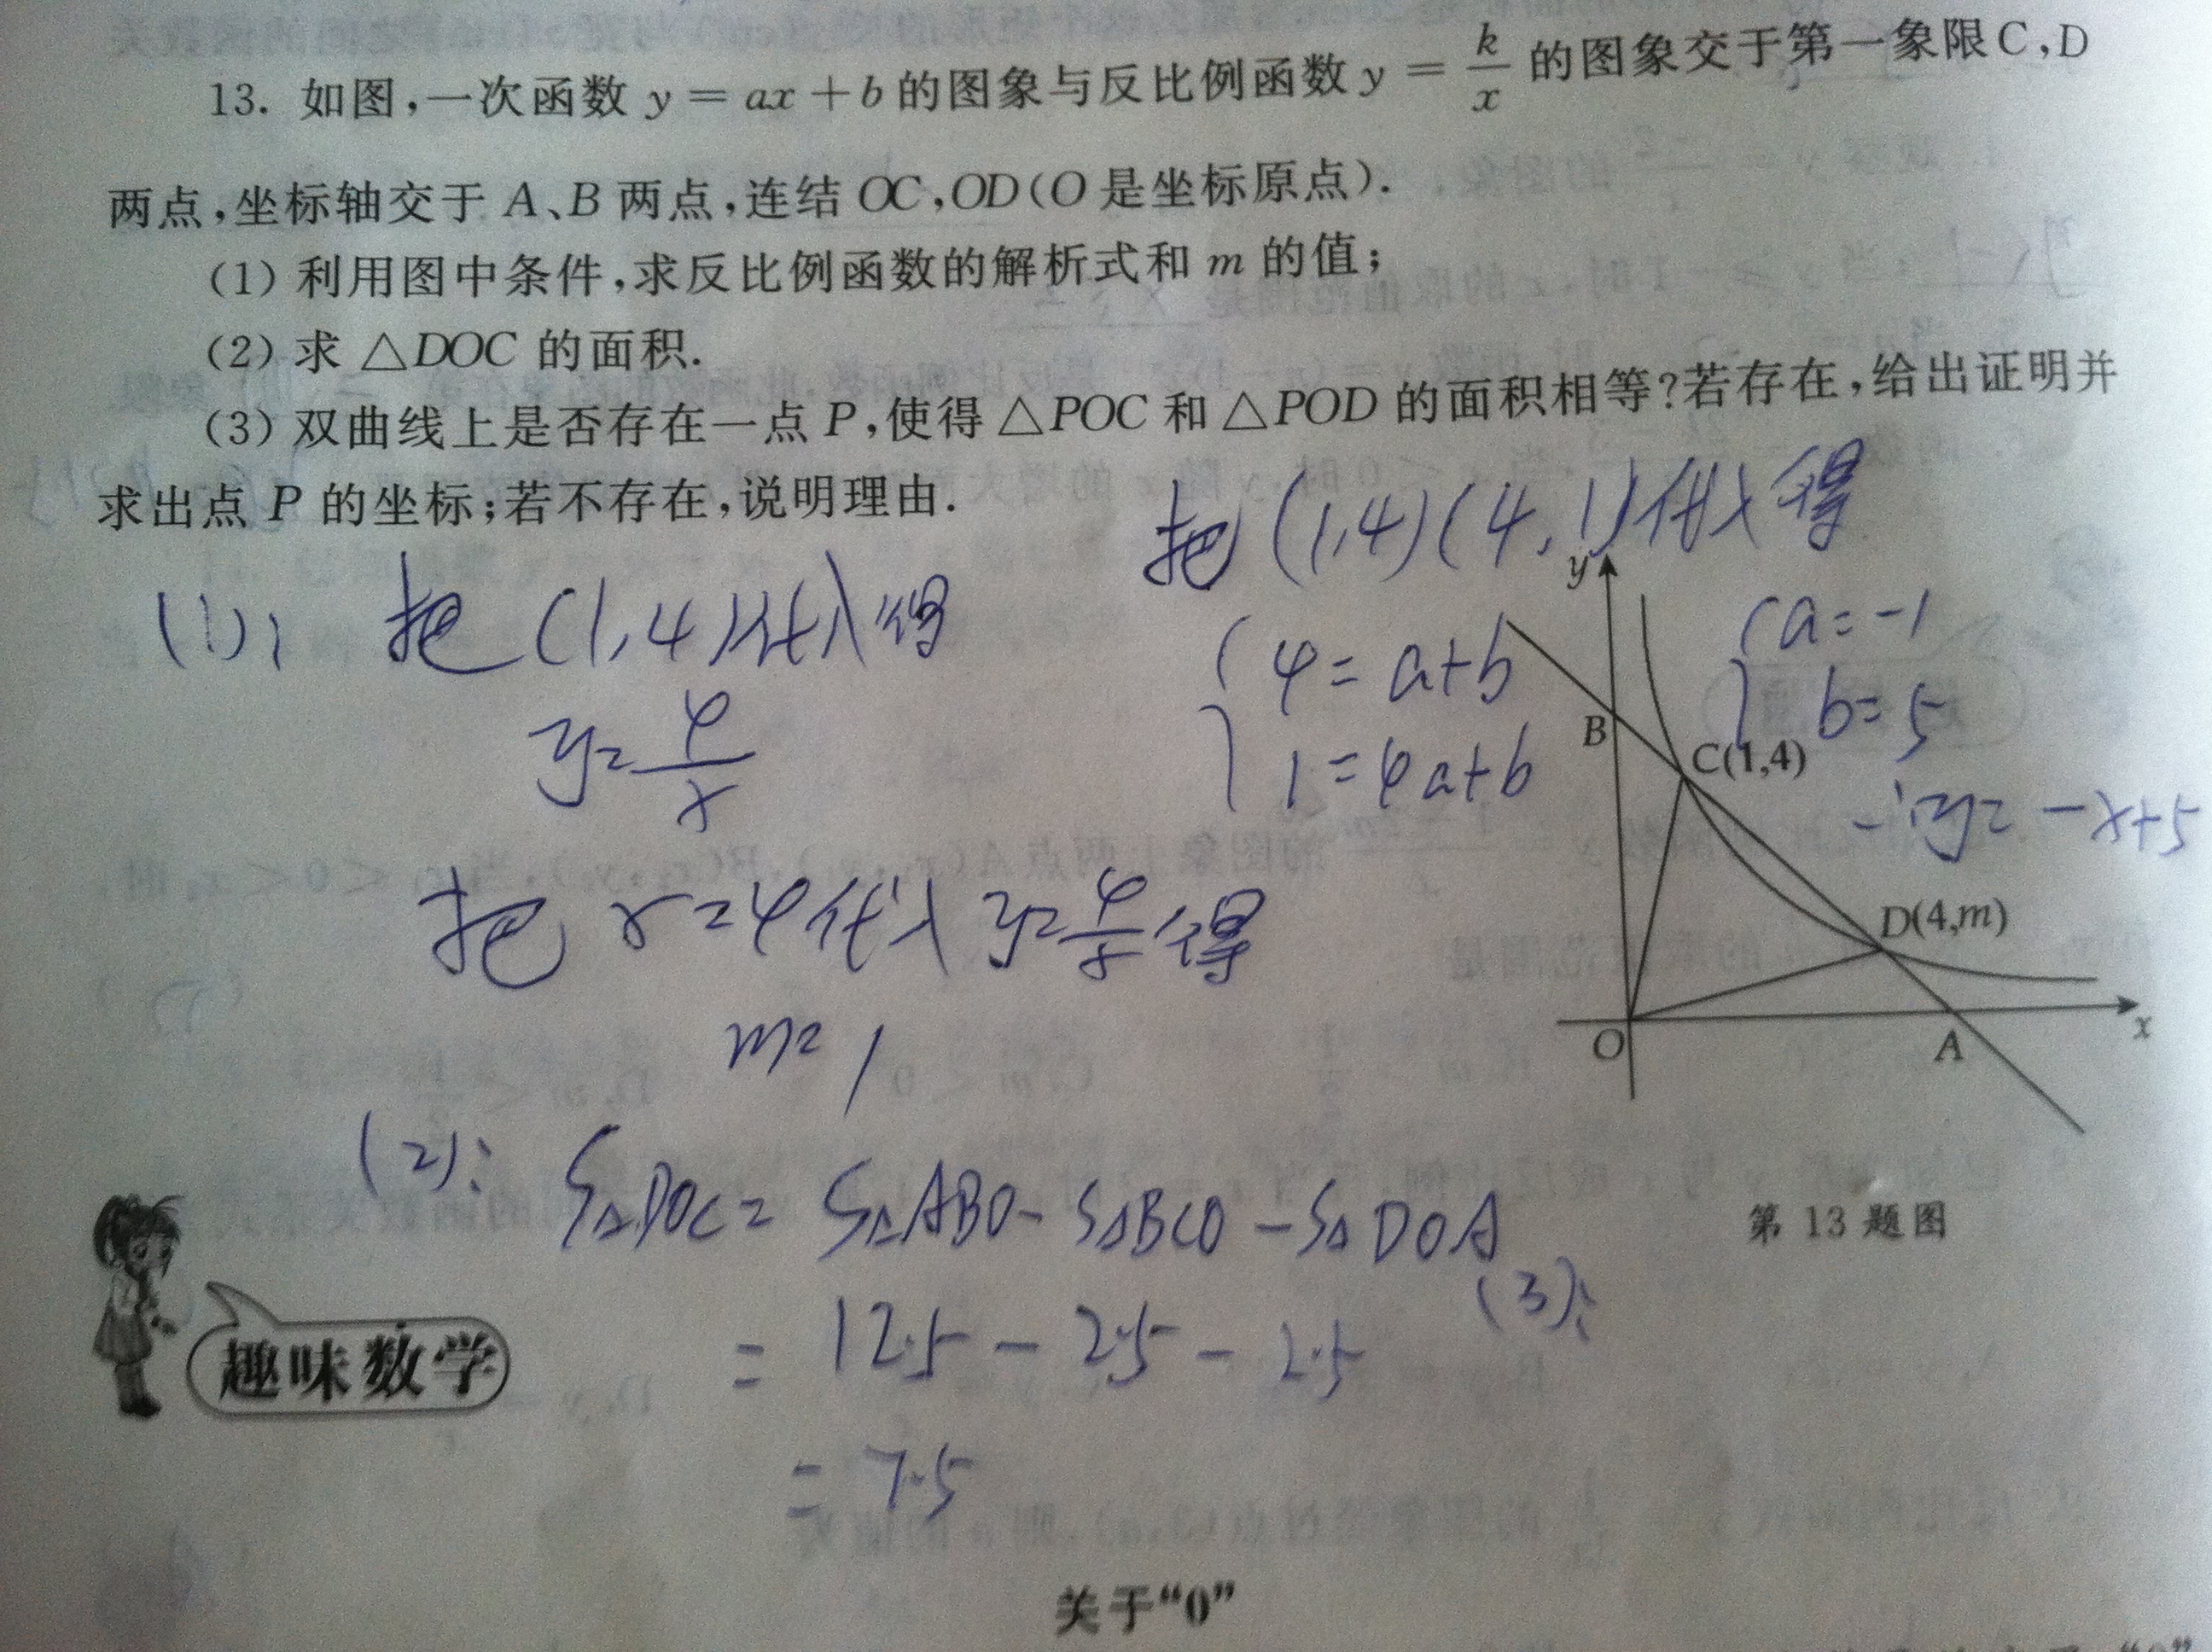 13. 如图,一次函数 y = ax + b 的图象与反比例函数 y = k/x 的图象交于第一象限C,D
两点,坐标轴交于 A、B 两点,连结 OC,OD(O 是坐标原点).
(1) 利用图中条件,求反比例函数的解析式和 m 的值;
(2) 求 △DOC 的面积.
(3) 双曲线上是否存在一点 P,使得 △POC 和 △POD 的面积相等?若存在,给出证明并
求出点 P 的坐标;若不存在,说明理由.
把 (1,4)(4,1)代入得
(1): 把 (1,4)代入得
{4 = a+b
1 = 4a+b
{a=-1
b=5
y=4/x
∴y=-x+5
y
B
C(1,4)
D(4,m)
O
A
x
把 x=4代入 y=4/x 得
m=1
(2): S△DOC= S△ABO- S△BCO -S△DOA
第 13 题图
(3):
= 12.5 - 2.5 - 2.5
= 7.5
趣味数学
关于“0”